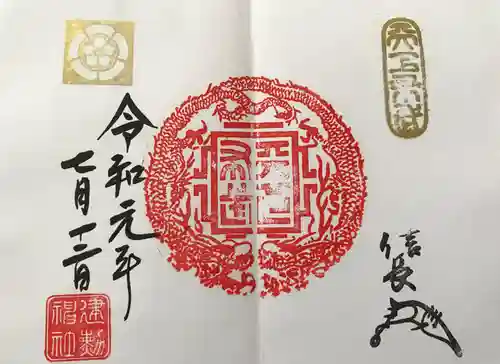 天下布武
信長
令和元年
七月十二日
建勲
神社